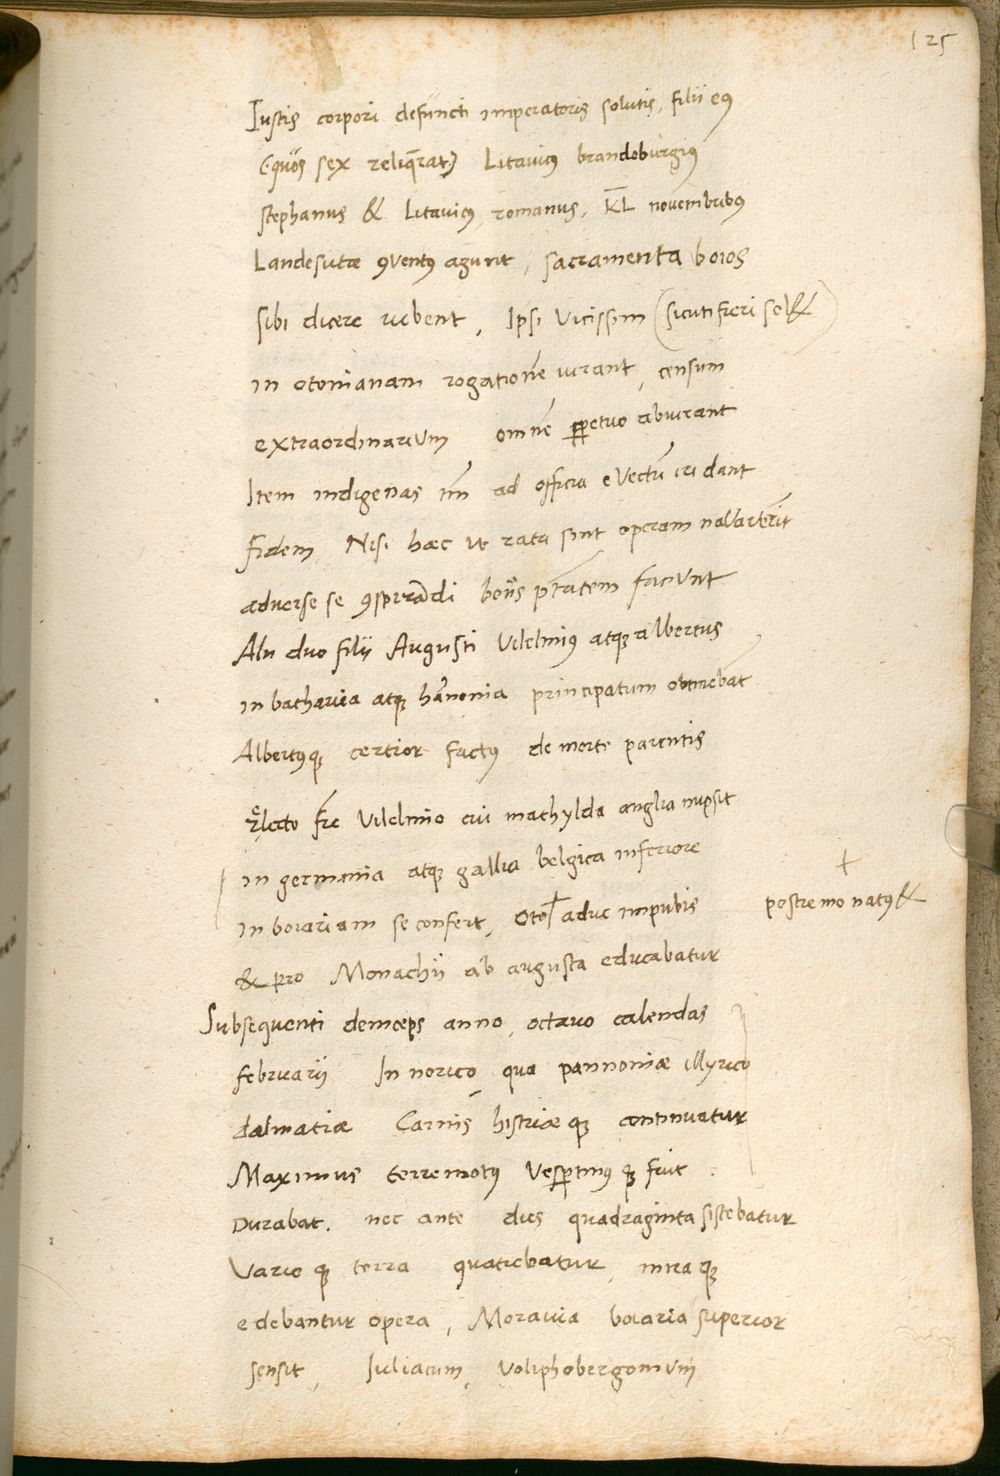 125
Iustis corpori defuncti imperatoris solutis, filii eꝰ
(quos sex reliq̄rat) Litavicꝰ brandoburgiꝰ
stephanus & Litavicꝰ romanus, K̄L novembribꝰ
Landesutæ ꝯventꝰ agunt, sacramenta boios
sibi dicere iubent, Ipsi vicissim (sicuti fieri sol&)
in otonianam rogationē iurant, censum
extraordinarium omnē ꝑpetuo abiurant
Item indigenas ad officia evectū iri dant
fidem, Nisi hæc ut rata sint operam navarīt
adverse se ꝯspirādi potestatem faciunt
Alii duo filii Augusti Vilelmiꝰ atqꝫ albertus
in bathavia atqꝫ hānonia principatum obtinebāt
Albertꝰqꝫ certior factꝰ de morte parentis
Relicto fr̄e Vilelmio cui mathylda anglia nupsit
in germania atqꝫ gallia belgica inferiore
in boiariam se confert, Oto† aduc impubis
† postremo natꝰ &
& pro Monachii ab augusta educabatur
Subsequenti deinceps anno, octavo calendas
februarii In norico, qua pannoniæ illyrico
dalmatiæ Carnis histriæqꝫ continuatur
Maximus terremotꝰ Vesꝑtinꝰqꝫ fuit.
Durabat. nec ante dies quadraginta sistebatur
Varioqꝫ terra quatiebatur, miraqꝫ
edebantur opera, Moravia boiaria superior
sensit, Iuliacum, Voliphobergomum